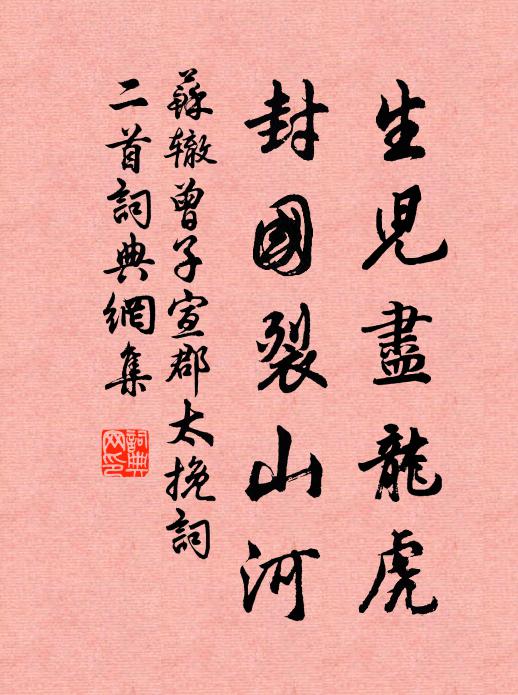 生兒盡龍虎
封國裂山河
蘇辙曾子宣郡太挽詞
二首詞典網集
詞典
网印